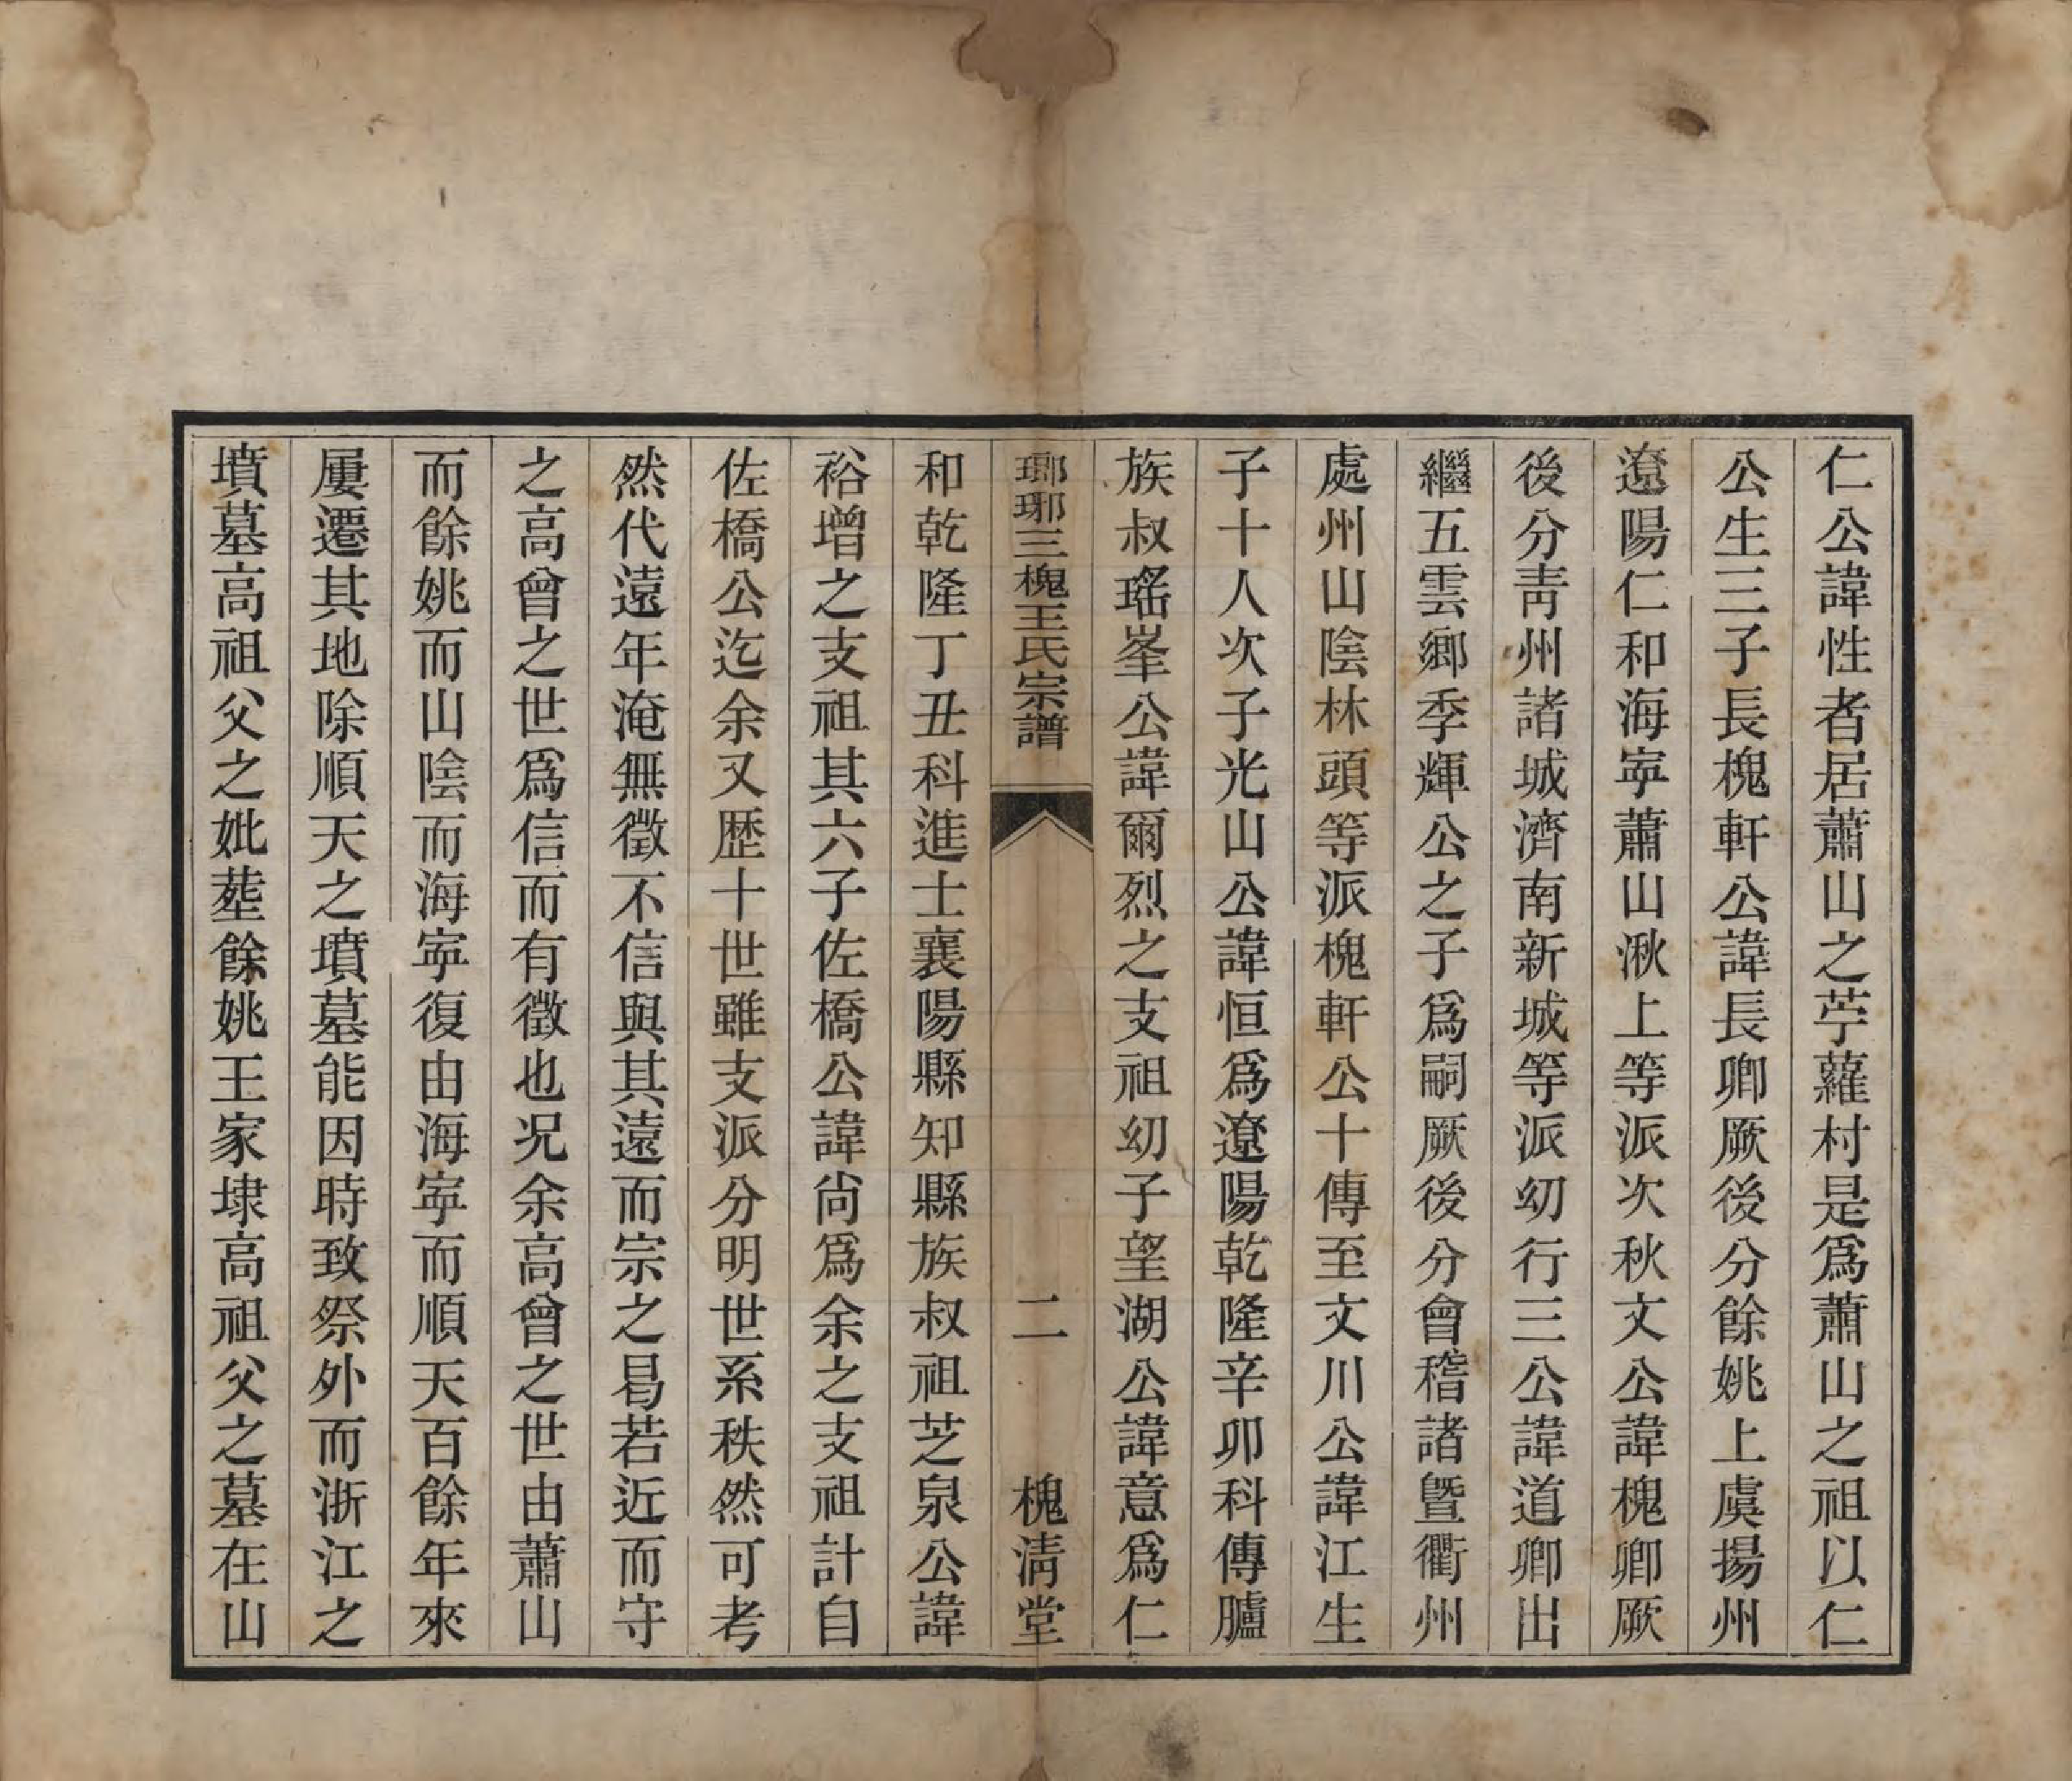 仁公諱性者居蕭山之苧蘿村是爲蕭山之祖以仁
公生三子長槐軒公諱長卿厥後分餘姚上虞揚州
遼陽仁和海寧蕭山湫上等派次秋文公諱槐卿厥
後分靑州諸城濟南新城等派幼行三公諱道卿出
繼五雲鄉季輝公之子爲嗣厥後分會稽諸曁衢州
處州山陰林頭等派槐軒公十傳至文川公諱江生
子十人次子光山公諱恒爲遼陽乾隆辛卯科傳臚
族叔瑤峯公諱爾烈之支祖幼子望湖公諱意爲仁
瑯琊三槐王氏宗譜 二 槐淸堂
和乾隆丁丑科進士襄陽縣知縣族叔祖芝泉公諱
裕增之支祖其六子佐橋公諱尙爲余之支祖計自
佐橋公迄余又歷十世雖支派分明世系秩然可考
然代遠年淹無徵不信與其遠而宗之曷若近而守
之高曾之世爲信而有徵也况余高曾之世由蕭山
而餘姚而山陰而海寧復由海寧而順天百餘年來
屢遷其地除順天之墳墓能因時致祭外而浙江之
墳墓高祖父之妣塟餘姚王家埭高祖父之墓在山